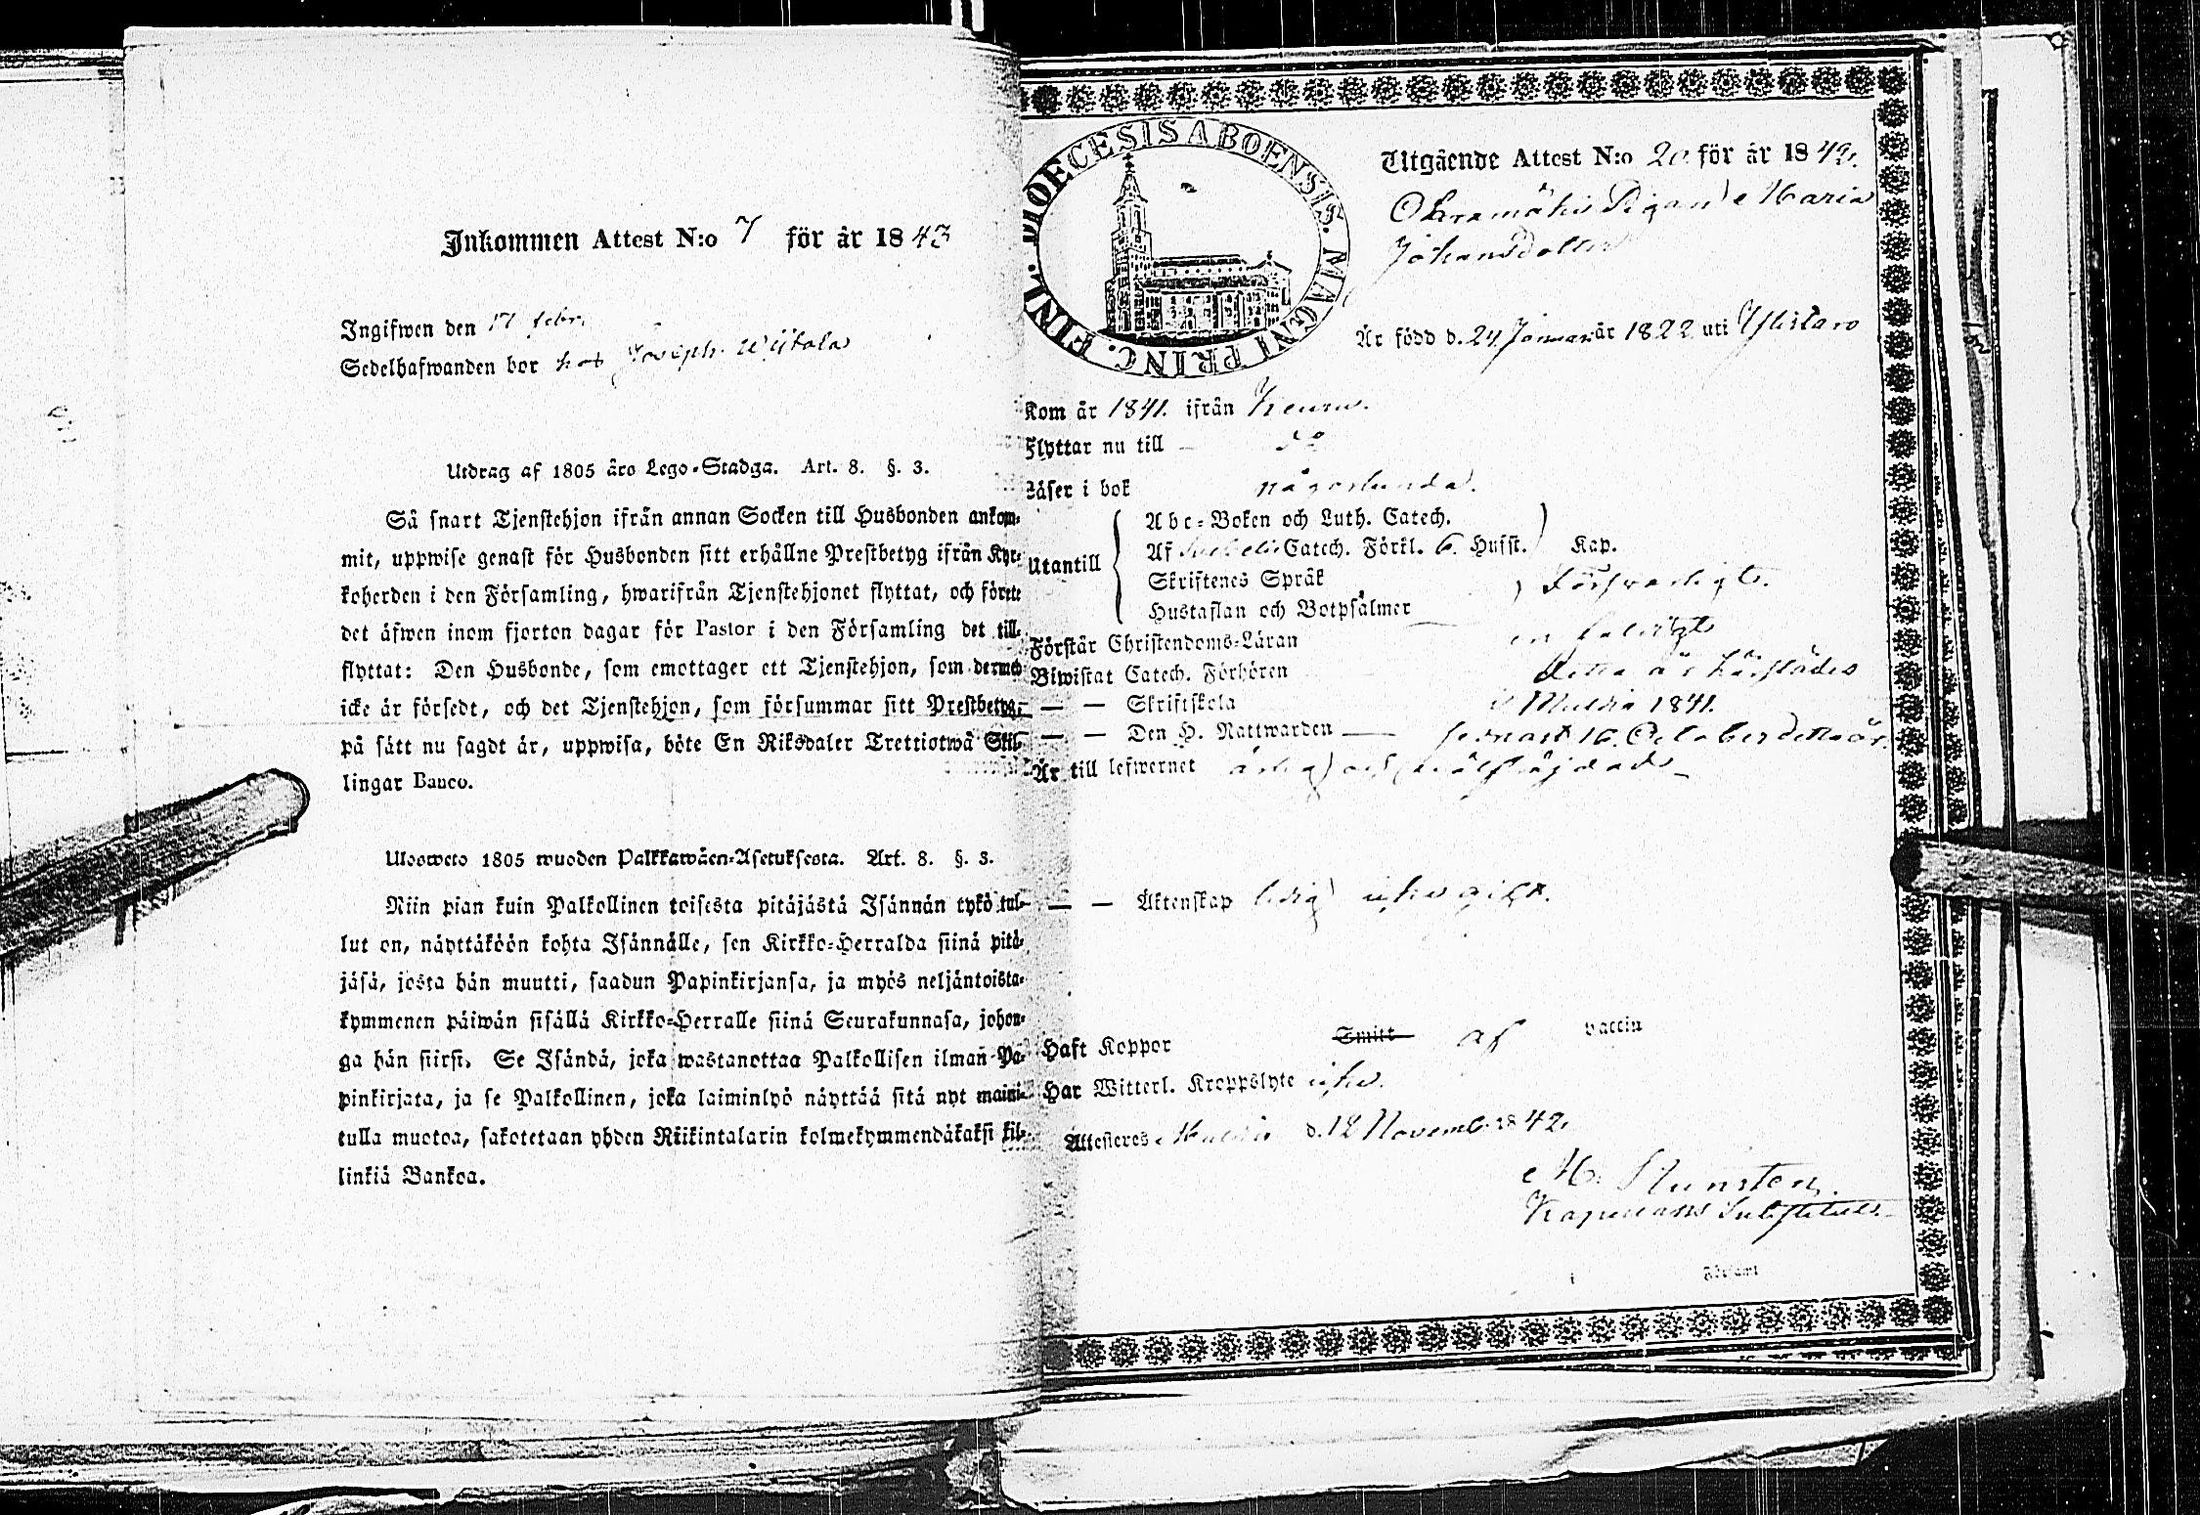 Inkommen Attest N:o 7 för år 1843
Ingifwen den 17 febr.
Sedelhafwanden bor hos Joseph Wijtala
Utdrag af 1805 års Lego-Stadga. Art. 8. §. 3.
Så snart Tjenstehjon ifrån annan Socken till Husbonden ankom-
mit, uppwise genast för Husbonden sitt erhållne Prestbetyg ifrån Kyr-
koherden i den Församling, hwarifrån Tjenstehjonet flyttat, och förete
det äfwen inom fjorton dagar för Pastor i den Församling det till-
flyttat: Den Husbonde, som emottager ett Tjenstehjon, som dermed
icke är försedt, och det Tjenstehjon, som försummar sitt Prestbetyg,
på sätt nu sagdt är, uppwisa, böte En Riksdaler Trettiotwå Skil-
lingar Banco.
Ulosweto 1805 wuoden Palkkawäen-Asetuksesta. Art. 8. §. 3.
Niin pian kuin Palkollinen toisesta pitäjästä Isännän tykö tul-
lut on, näyttäköön kohta Isännälle, sen Kirkko-Herralda siinä pitä-
jäsä, josta hän muutti, saadun Papinkirjansa, ja myös neljäntoista-
kymmenen päiwän sisällä Kirkko-Herralle siinä Seurakunnasa, johon-
ga hän siirsi. Se Isändä, joka wastanottaa Palkollisen ilman Pa-
pinkirjata, ja se Palkollinen, joka laiminlyö näyttää sitä nyt maini-
tulla muotoa, sakotetaan yhden Riikintalarin kolmekymmendäkaksi kil-
linkiä Bankoa.
FINL. DIOECESIS ABOENSIS. MAGNI PRINC.
Utgående Attest N:o 20 för år 1842.
Pigan Maria
Johansdotter
Är född d. 24 Januari år 1822 uti Ylistaro
Kom år 1841. ifrån Keuru.
Flyttar nu till — do
Läser i bok någorlunda.
Utantill
Abc-Boken och Luth. Catech.
Af Catech. Förkl. 6. Hufst. Kap.
Skriftenes Språk Förswarligt.
Hustaflan och Botpsalmer
Förstår Christendoms-Läran enfaldigt
Biwistat Catech. Förhören detta år härstädes
— — Skriftskola i Multia 1841.
— — Den H. Nattwarden — senast 16. October detta år.
Är till lefwernet ärlig och
— — Äktenskap ledig icke gift.
Haft Koppor Smitt af vaccin
Har Witterl. Kroppslyte icke.
Attesteres Multia d. 12 Novemb. 1842.
M.
Kapellans Substitut.
i Församl